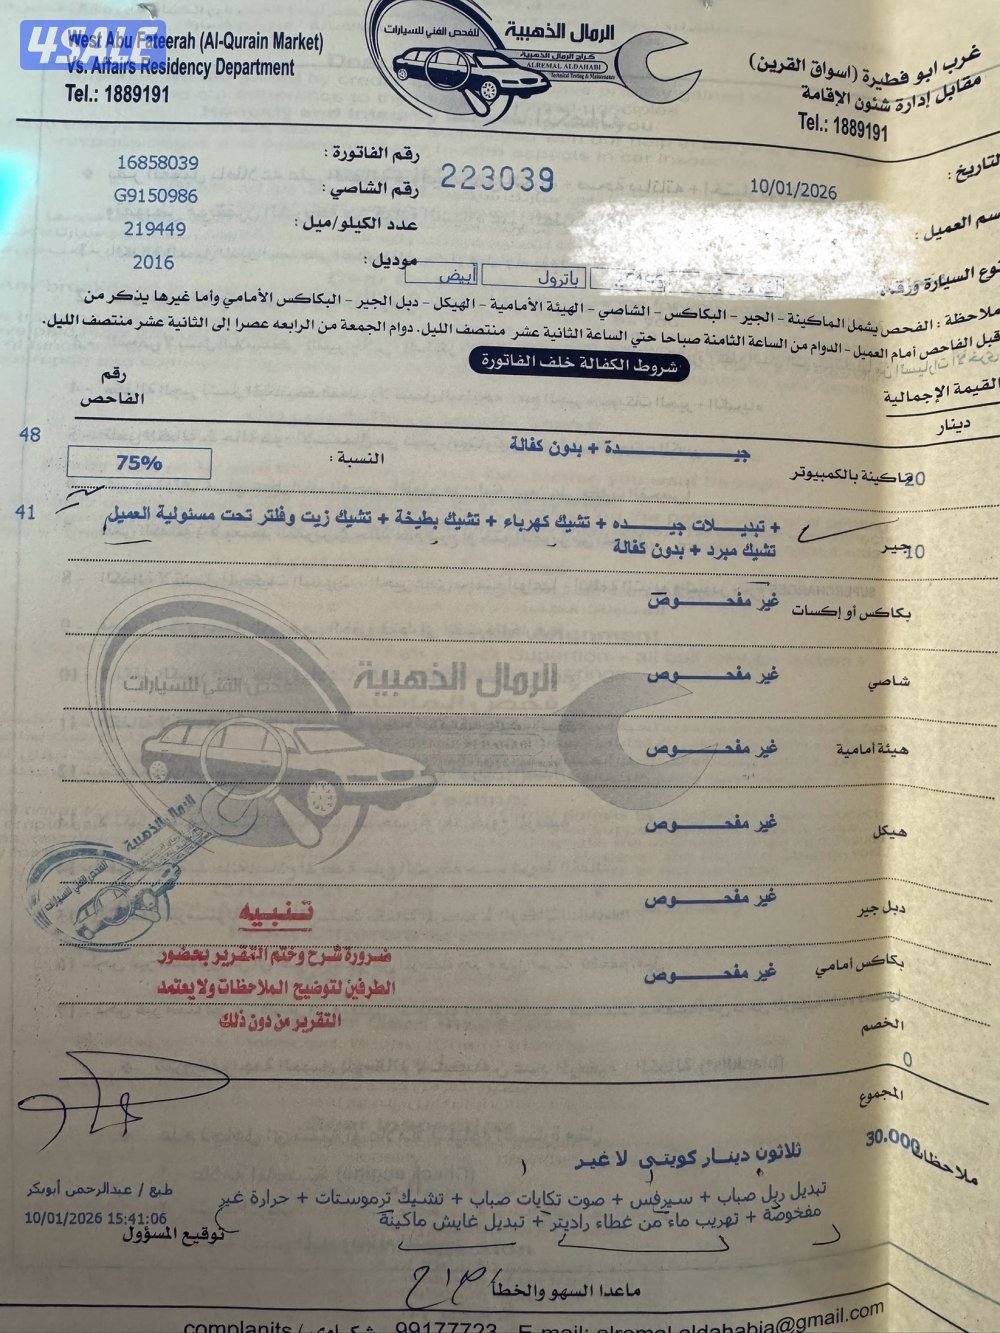 4SALE
West Abu Fateerah (Al-Qurain Market)
Vs. Affairs Residency Department
Tel.: 1889191
الرمال الذهبية
للفحص الفني للسيارات
كراج الرمال الذهبية
ALREMAL ALDAHABI
Technical Testing & Maintenance
غرب ابو فطيرة (اسواق القرين)
مقابل إدارة شئون الإقامة
Tel.: 1889191
التاريخ :
10/01/2026
223039
رقم الفاتورة :
16858039
رقم الشاصي :
G9150986
سم العميل :
عدد الكيلو/ميل :
219449
موديل :
2016
باترول
أبيض
ملاحظة : الفحص يشمل الماكينة - الجير - البكاكس - الشاصي - الهيئة الأمامية - الهيكل - دبل الجير - البكاكس الأمامي وأما غيرها يذكر من
قبل الفاحص أمام العميل - الدوام من الساعة الثامنة صباحا حتي الساعة الثانية عشر منتصف الليل. دوام الجمعة من الرابعه عصرا إلى الثانية عشر منتصف الليل.
شروط الكفالة خلف الفاتورة
القيمة الإجمالية
دينار
رقم
الفاحص
20
ماكينة بالكمبيوتر
جيـــدة + بدون كفالة
النسبة :
75%
48
10
جير
+ تبديـــلات جيـــده + تشيك كهرباء + تشيك بطيخة + تشيك زيت وفلتر تحت مسئولية العميل
تشيك مبرد + بدون كفالة
41
بكاكس أو إكسات
غير مفحـــوص
شاصي
غير مفحـــوص
هيئة أمامية
غير مفحـــوص
هيكل
غير مفحـــوص
دبل جير
غير مفحـــوص
بكاكس أمامي
غير مفحـــوص
الرمال الذهبية
تنبيه
ضرورة شرح وختم التقرير بحضور
الطرفين لتوضيح الملاحظات ولا يعتمد
التقرير من دون ذلك
الخصم
0
المجموع
30.000
ثلاثون دينار كويتي لا غير
ملاحظات
تبديل ربل صباب + سيرفس + صوت تكايات صباب + تشيك ترموستات + حرارة غير
مفحوصة + تهريب ماء من غطاء راديتر + تبديل غايش ماكينة
طبع / عبدالرحمن أبوبكر
10/01/2026 15:41:06
توقيع المسؤول
ماعدا السهو والخطأ
complanits / شكاوى 99177723 - E-mail: alremal.aldahabia@gmail.com